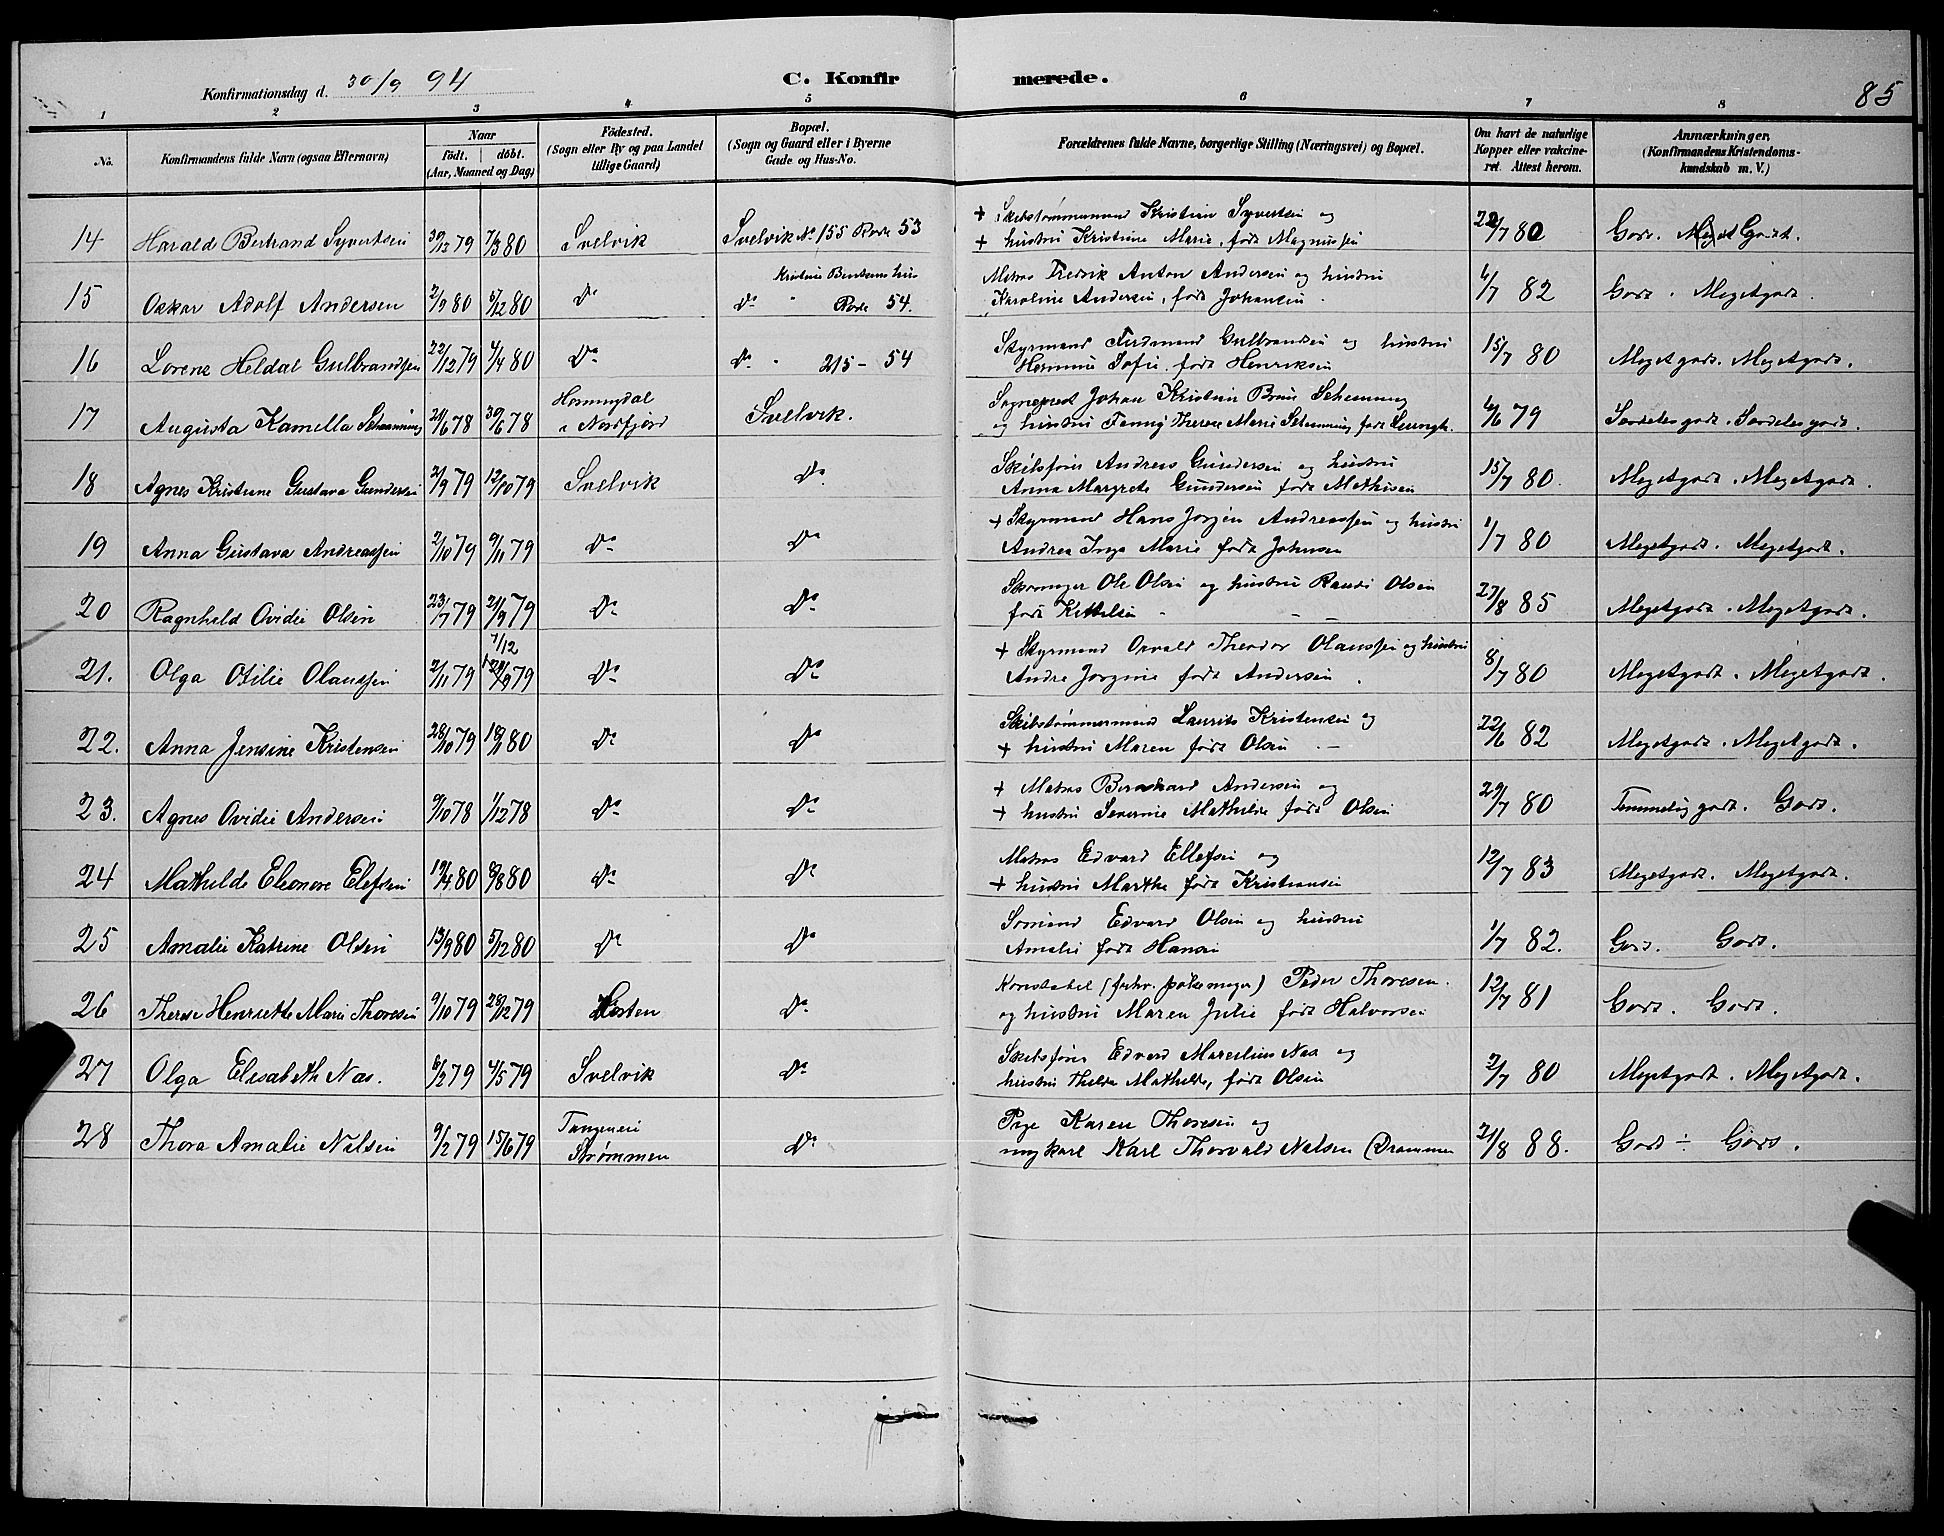 Konfirmationsdag d. 30/9 94 C. Konfirmerede. 85
1 2 3 4 5 6 7 8
No. Konfirmandens fulde Navn (ogsaa Efternavn) Naar født. døbt. (Aar, Maaned og Dag) Fødested. (Sogn eller By og paa Landet tillige Gaard) Bopæl. (Sogn og Gaard eller i Byerne Gade og Hus-No. Forældrenes fulde Navne, borgerlige Stilling (Næringsvei) og Bopæl. Om havt de naturlige Kopper eller vakcineret. Attest herom. Anmærkninger, (Konfirmandens Kristendomskundskab m. V.)
+ Skibstømmermand Kristian Syvertsen og
14 Harald Bertrand Syvertsen 30/12 79 7/3 80 Svelvik Svelvik No 155 Rode 53 + hustru Kristine Marie, født Magnussen 22/7 80 Godt. Meget Godt.
Kristine Bentsens hus Matros Fredrik Anton Andersen og hustru
15 Oskar Adolf Andersen 2/9 80 5/12 80 Do Do " Rode 54. Karoline Andersen, født Johansen 6/7 82 Godt. Megetgodt.
Styrmand Ferdinand Gulbrandsen og hustru
16 Lorene Heldal Gulbrandsen 22/12 79 4/4 80 Do Do " 215 - 54 Hermine Sofie født Henriksen 15/7 80 Megetgodt. Megetgodt.
Horningdal Sogneprest Johan Kristian Brun Schanning
17 Augusta Kamella Schanning 21/6 78 30/6 78 i Nordfjord Svelvik. og hustru Fanny Therese Marie Schanning født 6/6 79 Særdelesgodt. Særdelesgodt.
Skibsfører Andreas Gundersen og hustru
18 Agnes Kristine Gustava Gundersen 2/9 79 12/10 79 Svelvik Do Anna Margrete Gundersen født Mathisen 15/7 80. Megetgodt. Megetgodt.
+ Styrmand Hans Jorgen Andreassen og hustru
19 Anna Gustava Andreassen 2/10 79 9/11 79 Do Do Andrea Inga Marie født Johnsen 1/7 80 Megetgodt. Megetgodt.
Ole Olsen og hustru Randi Olsen
20 Ragnhild Ovidie Olsen 23/7 79 21/9 79 Do Do født Kittelsen 27/8 85 Megetgodt. Megetgodt.
7/12 + Styrmand Osvald Theodor Olaussen og hustru
21. Olga Otilie Olaussen 2/11 79 79 Do Do Andre Jorgine født Andersen 8/7 80 Megetgodt. Megetgodt.
Skibstømmermand Laurits Kristensen og
22. Anna Jensine Kristensen 28/10 79 18/1 80 Do Do + hustru Maren født Olsen 22/6 82 Megetgodt. Megetgodt.
+ Matros Bernhard Andersen og
23. Agnes Ovidie Andersen 9/10 78 1/12 78 Do Do + hustru Severine Mathilde født Olsen 29/7 80 Temmelig godt. Godt.
Matros Edvard Ellefsen og
24 Mathilde Eleonore Elefsen 19/4 80 8/8 80 Do Do + hustru Marthe født Kristiansen 12/7 83 Megetgodt. Megetgodt.
Sømand Edvard Olsen og hustru
25 Amalie Katrine Olsen 13/9 80 5/12 80 Do Do Amalie født Hansen 1/7 82. Godt. Godt.
Konstabel (forhv. ) Peder Thoresen.
26 Therese Henriette Marie Thoresen 9/10 79 28/12 79 Horten Do og hustru Maren Julie født Halvorsen 12/7 81 Godt. Godt.
Skibsfører Edvard Marcilius Nas og
27 Olga Elisabeth Nas. 6/2 79 4/5 79 Svelvik Do hustru Thilda Mathilde, født Olsen 2/7 80 Megetgodt. Megetgodt.
Tangen ei Pige Karen Thoresen og
28 Thora Amalie Nilsen 9/2 79 15/6 79 Strømmen Do ungkarl Karl Thorvald Nilsen (Drammen 21/8 88. Godt ÷ Godt.